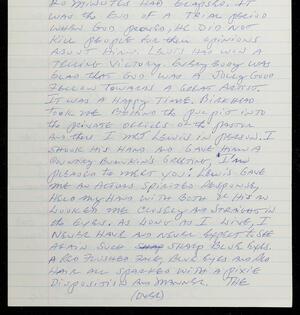 20 MINUTES HAD ELAPSED. IT
WAS THE END OF A TRIAL PERIOD
WHEN GOD PROVED HE DID NOT
KILL PEOPLE FOR THEIR OPINIONS
ABOUT HIM. LEWIS HAD WON A
TELLING VICTORY. EVERYBODY WAS
GLAD THAT GOD WAS A JOLLY GOOD
FELLOW TOWARDS A GREAT ARTIST.
IT WAS A HAPPY TIME. BIRKHEAD
TOOK ME BEHIND THE PULPIT INTO
THE PRIVATE OFFICES OF THE PASTOR
AND THUS I MET LEWIS IN PERSON. I
SHOOK HIS HAND AND GAVE HIM A
COUNTRY BUMPKIN'S GREETING, "I'M
PLEASED TO MEET YOU." LEWIS GAVE
ME AN ACTORS SPIRITED RESPONSE,
HELD MY HAND WITH BOTH OF HIS AND
LOOKED ME CLOSELY AND STRAIGHT IN
THE EYES. AS LONG AS I LIVE, I
NEVER HAVE AND NEVER EXPECT TO SEE
AGAIN SUCH SHARP BLUE EYES.
A RED FLUSHED FACE, BLUE EYES AND RED
HAIR ALL SPARKED WITH A PIXIE
DISPOSITION AND MANNER. THE
(OVER)